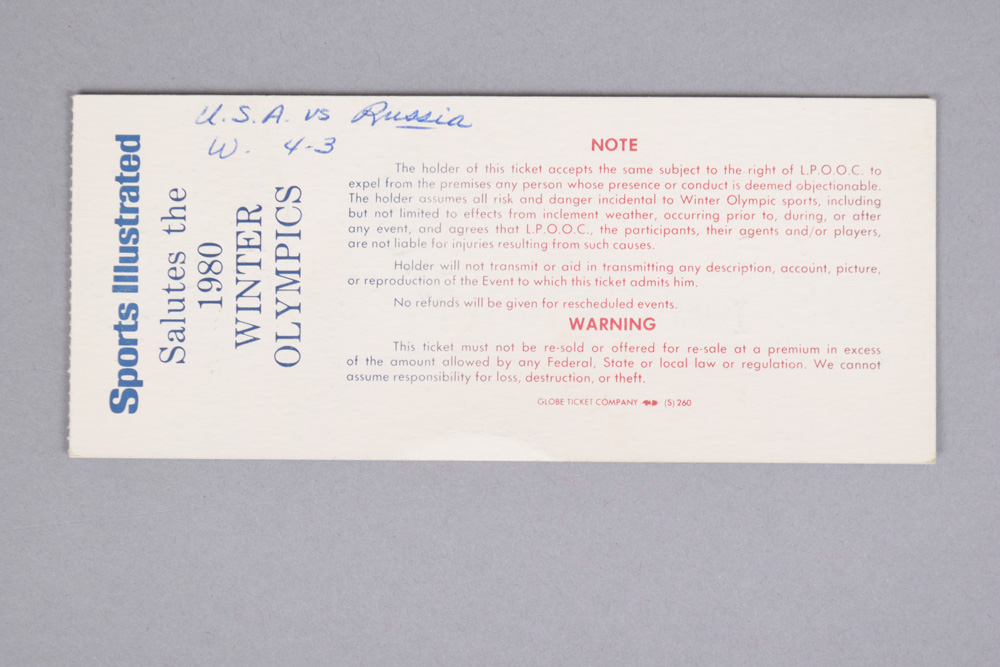 U.S.A. vs Russia
W. 4-3
Sports Illustrated
Salutes the
1980
WINTER
OLYMPICS
NOTE
The holder of this ticket accepts the same subject to the right of L.P.O.O.C. to
expel from the premises any person whose presence or conduct is deemed objectionable.
The holder assumes all risk and danger incidental to Winter Olympic sports, including
but not limited to effects from inclement weather, occurring prior to, during, or after
any event, and agrees that L.P.O.O.C., the participants, their agents and/or players,
are not liable for injuries resulting from such causes.
Holder will not transmit or aid in transmitting any description, account, picture,
or reproduction of the Event to which this ticket admits him.
No refunds will be given for rescheduled events.
WARNING
This ticket must not be re-sold or offered for re-sale at a premium in excess
of the amount allowed by any Federal, State or local law or regulation. We cannot
assume responsibility for loss, destruction, or theft.
GLOBE TICKET COMPANY (5) 260